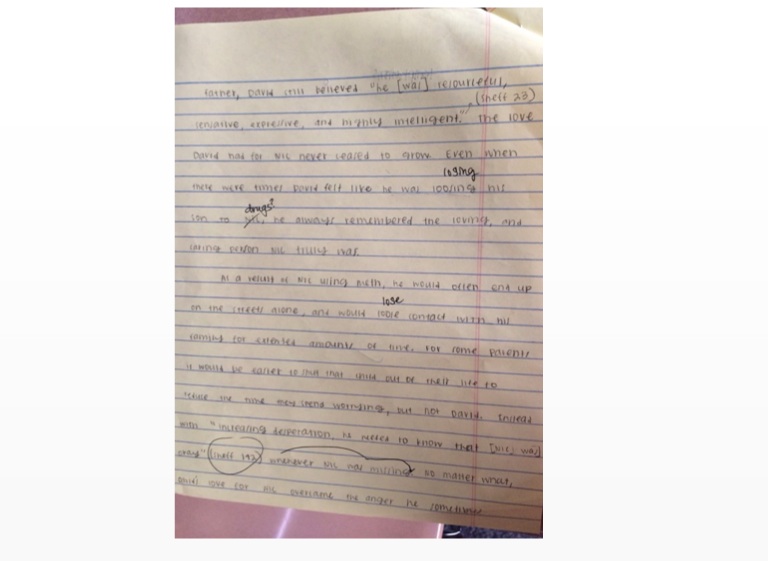 father, David still believed "he [was] resourceful,
(Sheff 23)
sensative, expressive, and highly intelligent." The love
David has for Nic never ceased to grow. Even when
losing
there were times David felt like he was loosing his
drugs?
son to he always remembered the loving, and
caring person Nic truly was.
As a result of Nic using meth, he would often end up
lose
on the streets alone, and would loose contact with his
family for extended amounts of time. For some parents
it would be easier to shut that child out of their life to
reduce the time they spend worrying, but not David. Instead
with "increasing desperation, he needed to know that [Nic] was
okay" (Sheff 192) whenever Nic was missing. No matter what,
love for Nic overcame the anger he sometimes